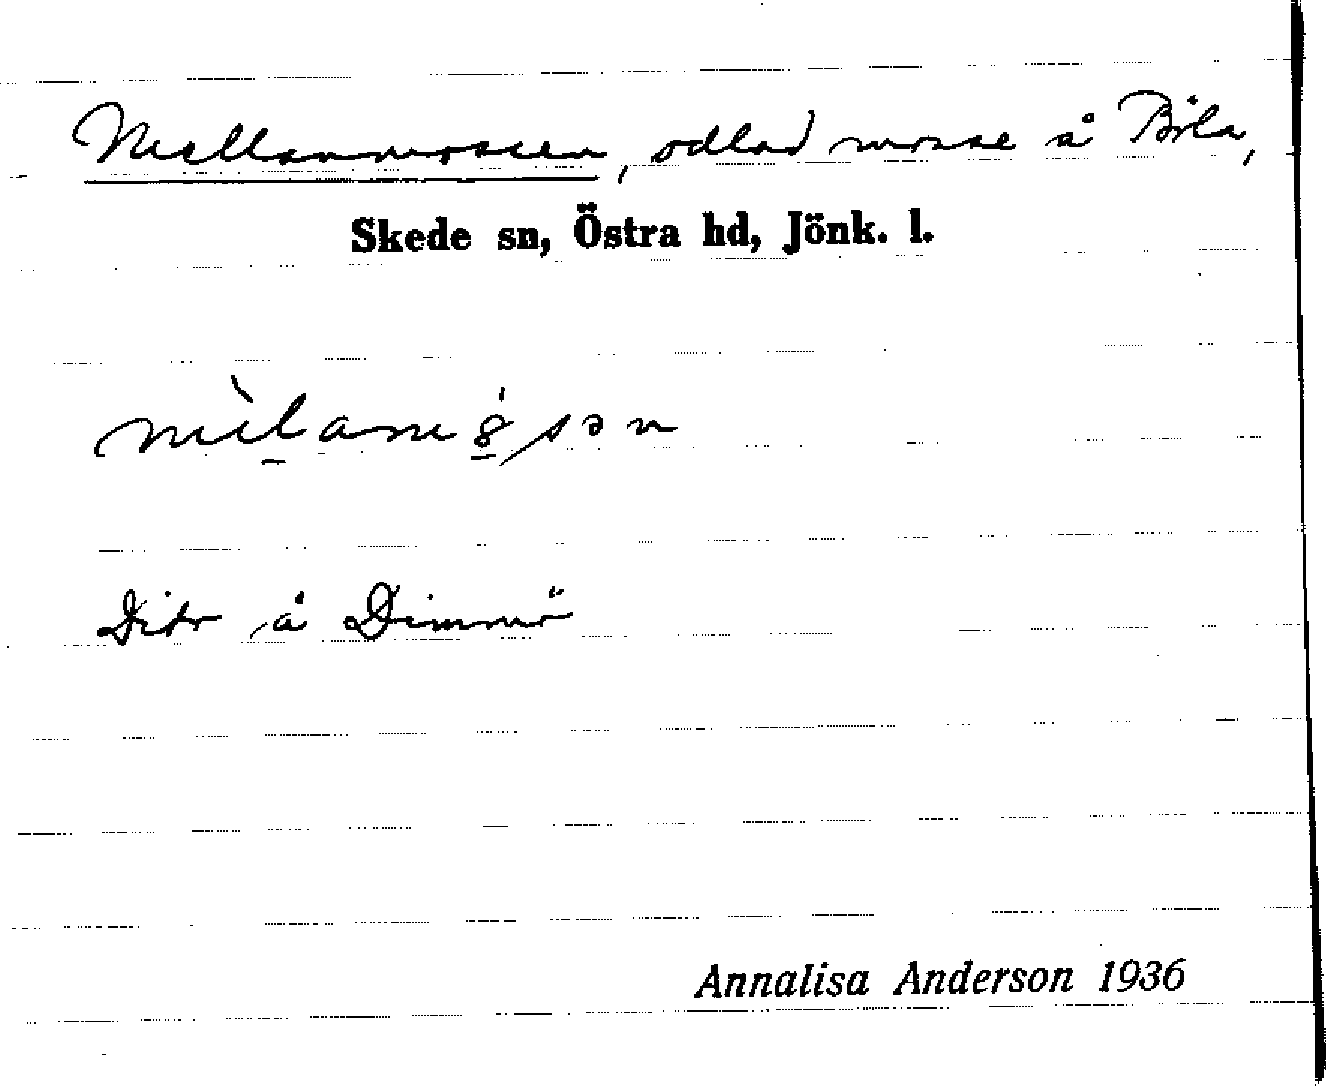 Mellanmossen, odlad mosse å Böla,
Skede sn, Östra hd, Jönk. l.
mèlamósən
Dito å Dimmö
Annalisa Anderson 1936